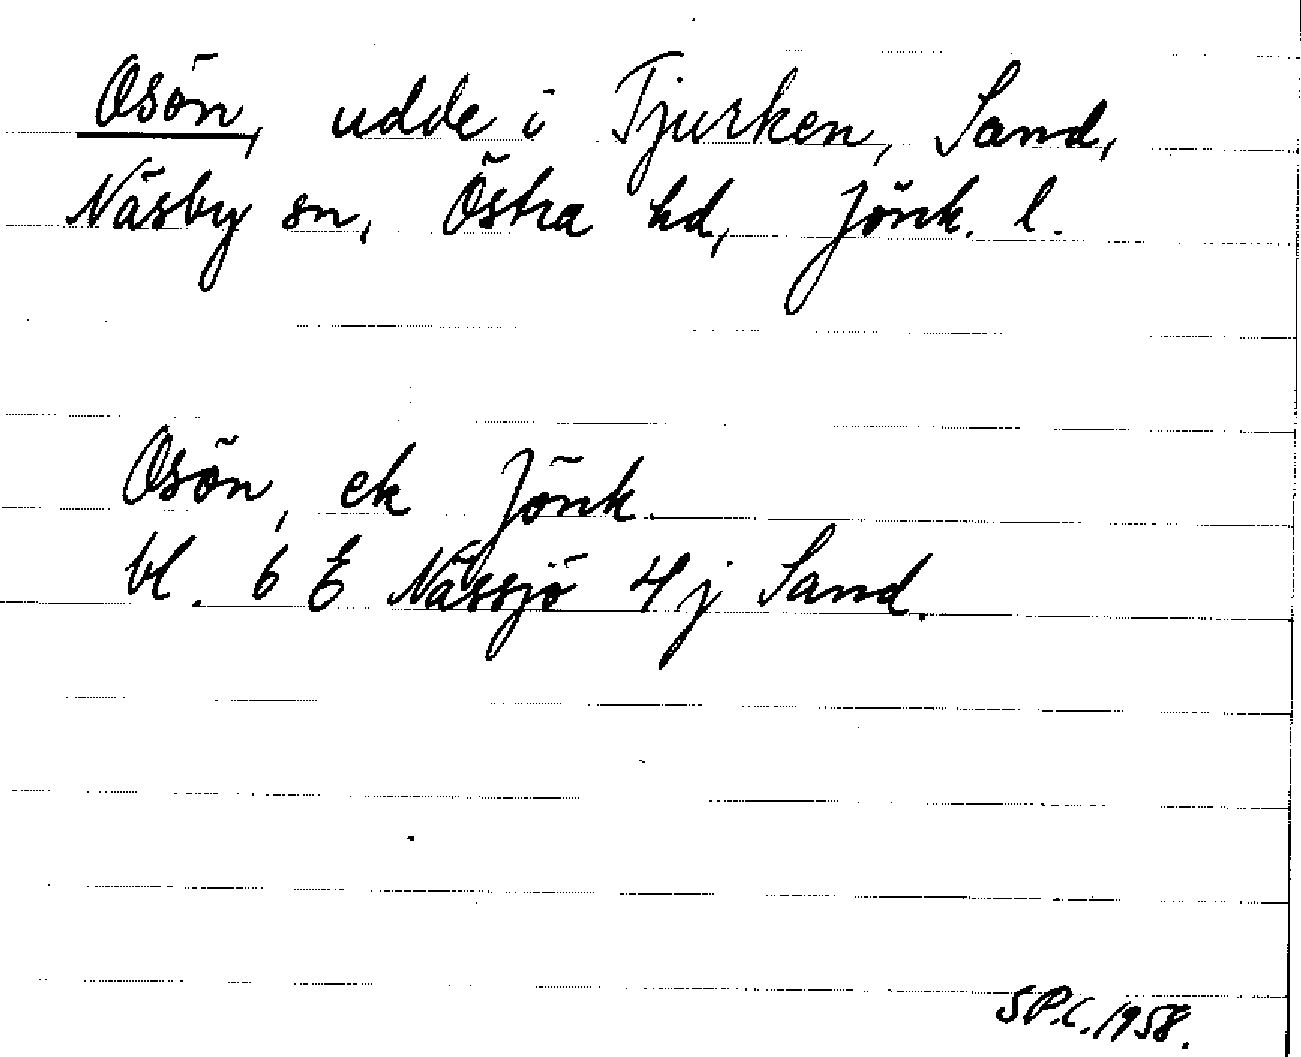 Osön, udde i Tjurken, Sand,
Näsby sn, Östra hd, Jönk. l.
Osön, ek Jönk.
bl. 6 E Nässjö 4 j Sand.
S P.C. 1958.